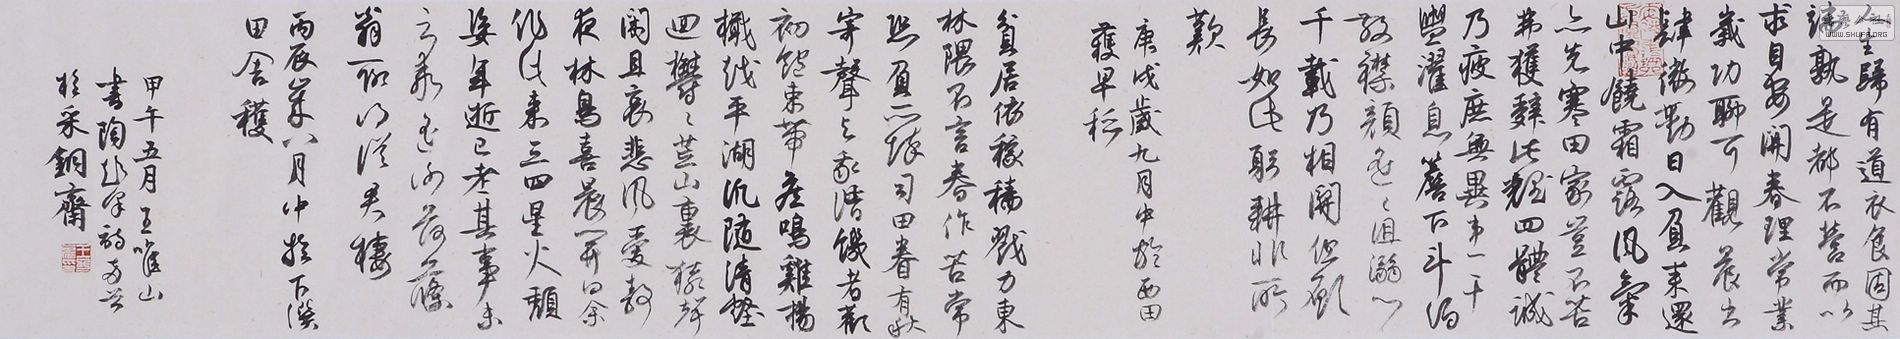 人生歸有道衣食固其
端孰是都不營而以
求自安開春理常業
歲功聊可觀晨出
肆微勤日入負耒還
山中饒霜露風氣
亦先寒田家豈不苦
弗獲辭此難四體誠
乃疲庶無異患干
盥濯息簷下斗酒
散襟顏遙遙沮溺心
千載乃相關但願
長如此躬耕非所
歎
庚戌歲九月中於西田
獲早稻
貧居依稼穡戮力東
林隈不言春作苦常
恐負所懷司田眷有秋
寄聲與我諧饑者歡
初飽束帶候鳴雞揚
檝越平湖汎隨清壑
迴鬱々荒山裏猿聲
閑且哀悲風愛靜
夜林鳥喜晨開曰余
作此來三四星火頹
姿年逝已老其事未
云乖遙謝荷蓧
翁聊得從君棲
丙辰歲八月中於下潠
田舍穫
甲午五月王唯山
書陶彭澤詩兩首
於采銅齋
WWW.SHUFA.ORG